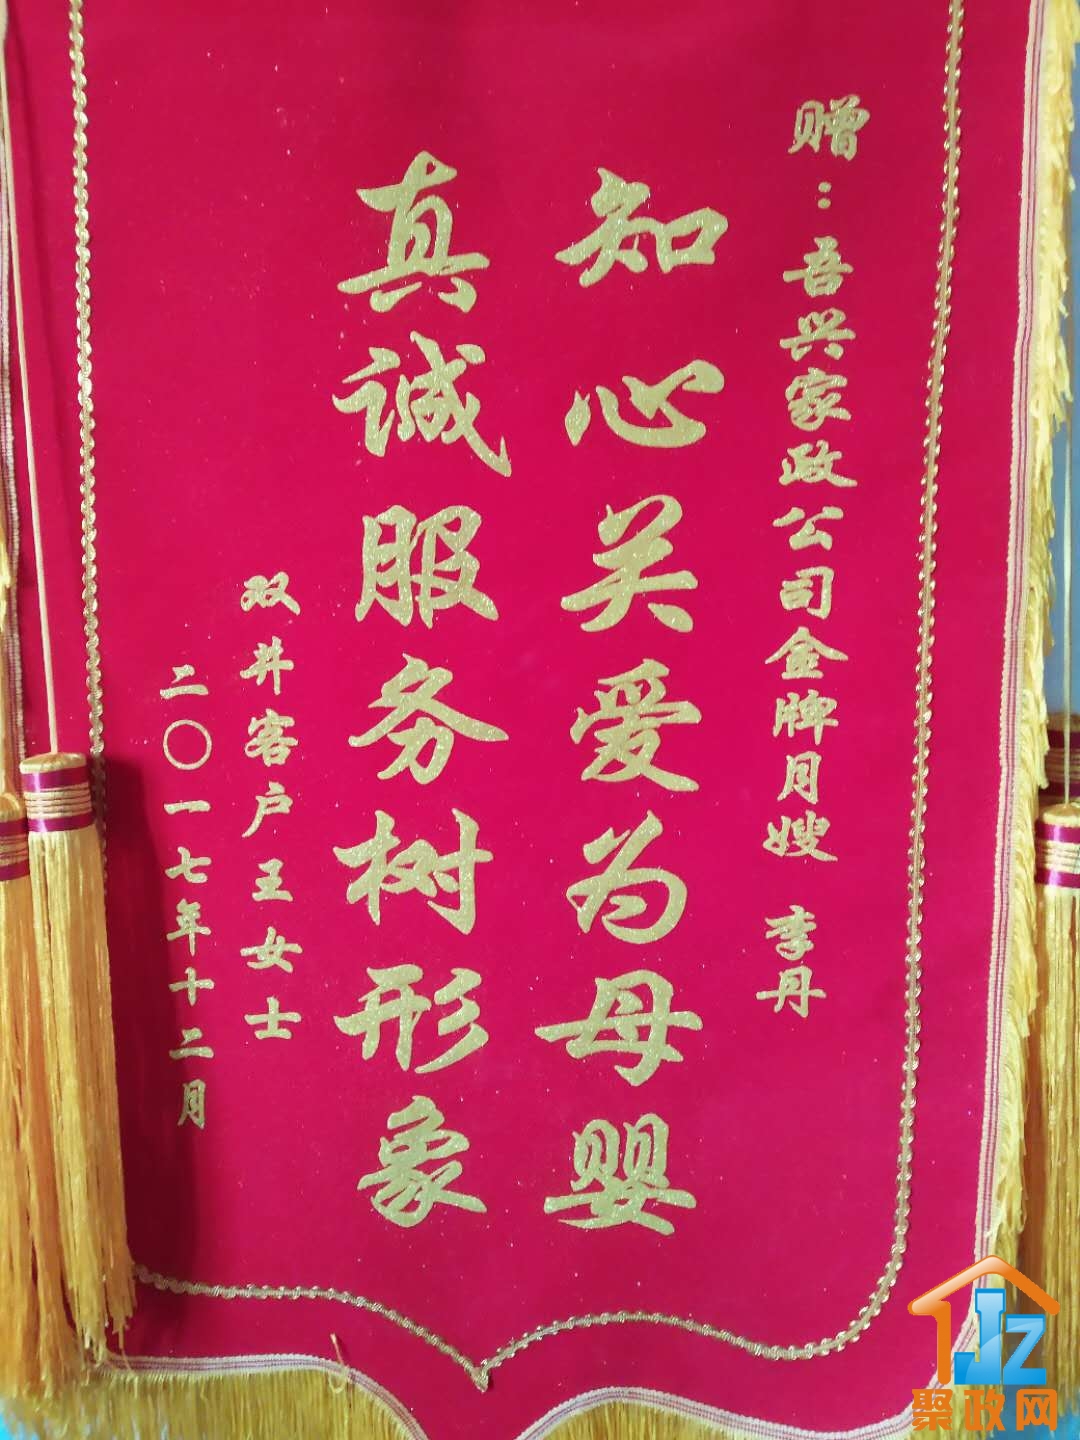 赠：吾兴家政公司金牌月嫂 李丹
知心关爱为母婴
真诚服务树形象
双井客户王女士
二〇一七年十二月
JZ
聚政网